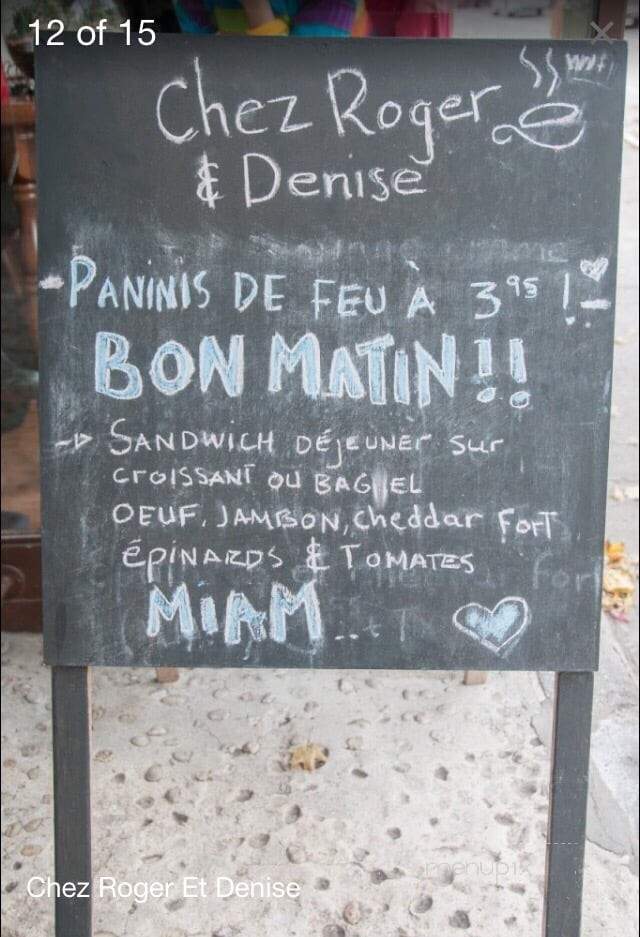 12 of 15
Chez Roger
& Denise
Wifi
PANINIS DE FEU À 3 95 !
BON MATIN!!
SANDWICH DÉJEUNER sur
CROISSANT OU BAGEL
OEUF, JAMBON, cheddar FORT
ÉPINARDS & TOMATES
MIAM...
menupix
Chez Roger Et Denise